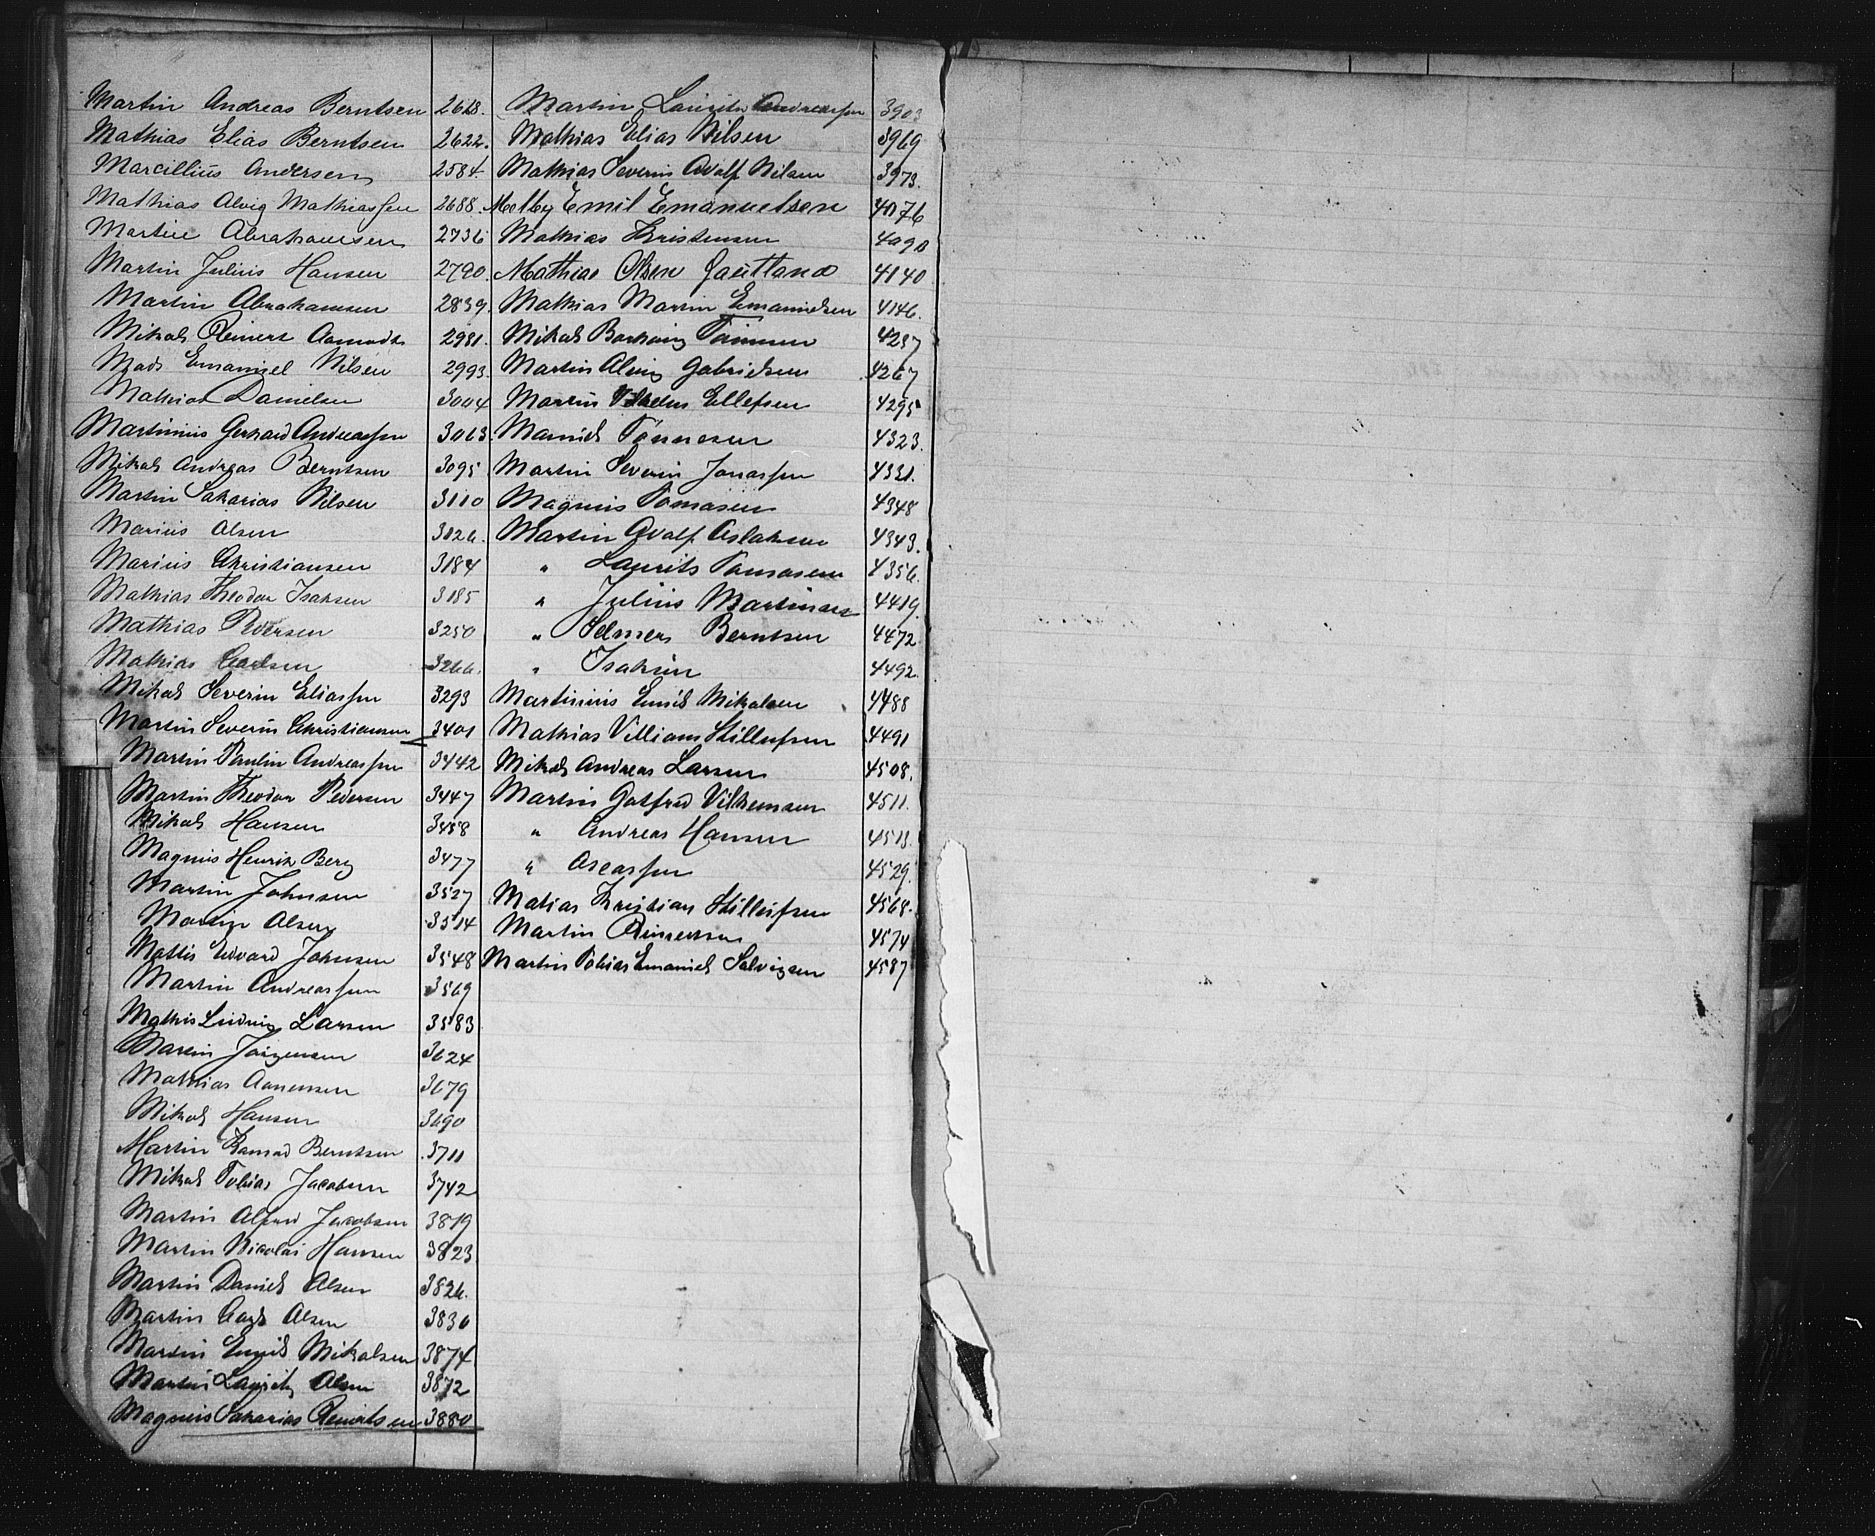 Martin Andreas Berntsen 2618.
Mathias Elias Berntsen 2622.
Marcillius Andersen 2584.
Mathias Alvig Mathiassen 2688
Martin Abrahamsen 2736
Martin Julius Hansen 2790
Martin Abrahamsen 2839.
Mikal Reinert Aamodt 2981.
Mads Emanuel Nilsen 2993.
Mathias Danielsen 3004
Martinius Gerhard Andreassen 3063.
Mikal Andreas Berntsen 3095
Martin Sakarias Nilsen 3110
Marius Olsen 3126.
Marius Christiansen 3184
Mathias Theodor Isaksen 3185
Mathias Pedersen 3250
Mathias Carlsen 3266.
Mikal Severin Eliassen 3293
Martin Severin Christiansen 3401
Martin Paulin Andreassen 3442
Martin Theodor Pedersen 3447
Mikal Hansen 3458
Magnus Henrik Berg 3477
Martin Johnsen 3527
Martin Olsen 3514
Mattis Edvard Johnsen 3548
Martin Andreassen 3569
Mathis Ludvig Larsen 3583
Martin Jörgensen 3624
Mathias Aanensen 3679
Mikal Hansen 3690
Martin Konrad Berntsen 3711
Mikal Tobias Jacobsen 3742
Martin Alfred Jacobsen 3819
Martin Nicolai Hansen 3823
Martin Daniel Olsen 3826.
Martin Carl Olsen 3830
Martin Emil Mikalsen 3874
Martin Lauritz Olsen 3872
Magnus Sakarias Reinertsen 3880
Martin Lauritz Andreassen 3903
Mathias Elias Nilsen 3969
Mathias Severin Adolf Nilsen 3973.
Melby Emil Emanuelsen 4076
Mathias Kristensen 4090
Mathias Olsen Gautland 4140
Mathias Martin Emanuelsen 4146.
Mikal 4237
Martin Alvig Gabrielsen 4267
Martin Vilhelm Ellefsen 4295
Daniel Tönnesen 4323.
Martin Severin Jonassen 4331.
Magnus Tomasen 4348
Martin Adolf Aslaksen 4343.
" Laurits Tomasen 4356
" Julius Martinsen 4419.
" Selmer Berntsen 4472
" Isaksen 4492.
Martinius Emil Mikalsen 4488
Mathias Villiam Stillufsen 4491
Mikal Andreas Larsen 4508.
Martin Gotfred Vilhemsen 4511.
" Andreas Hansen 4513.
" Aseassen 4529.
Matias Kristian Stillufsen 4568.
Martin Reinertsen 4574
Martin Tobias Emanuel Salvigsen 4587